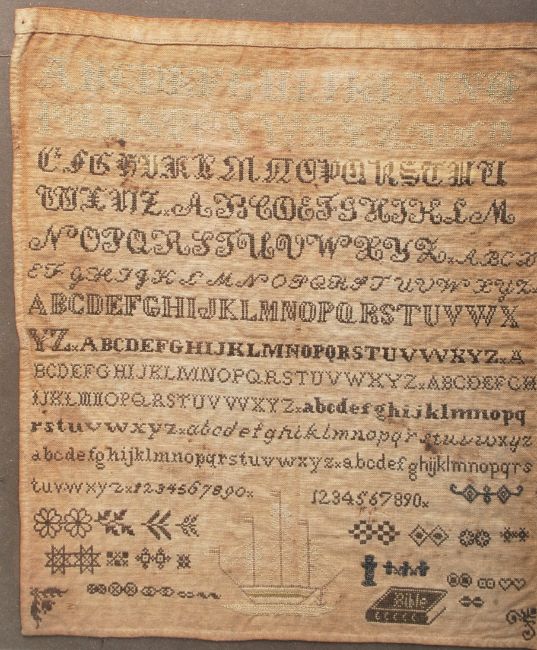 ABCDEFGHIJKLMNO
PQRSTUVWXYZABCD
EFGHIJKLMNOPQRSTUV
WXYZxABCDEFGHIJKLM
NOPQRSTUVWXYZxABCD
EFGHIJKLMNOPQRSTUVWXYZx
ABCDEFGHIJKLMNOPQRSTUVWX
YZxABCDEFGHIJKLMNOPQRSTUVWXYZxA
BCDEFGHIJKLMNOPQRSTUVWXYZxABCDEFGH
IJKLMNOPQRSTUVWXYZxabcdefghijklmnopq
rstuvwxyzxabcdefghijklmnopqrstuvwxyz
abcdefghijklmnopqrstuvwxyzxabcdefghijklmnopqrs
tuvwxyzx1234567890x 1234567890x
Bible